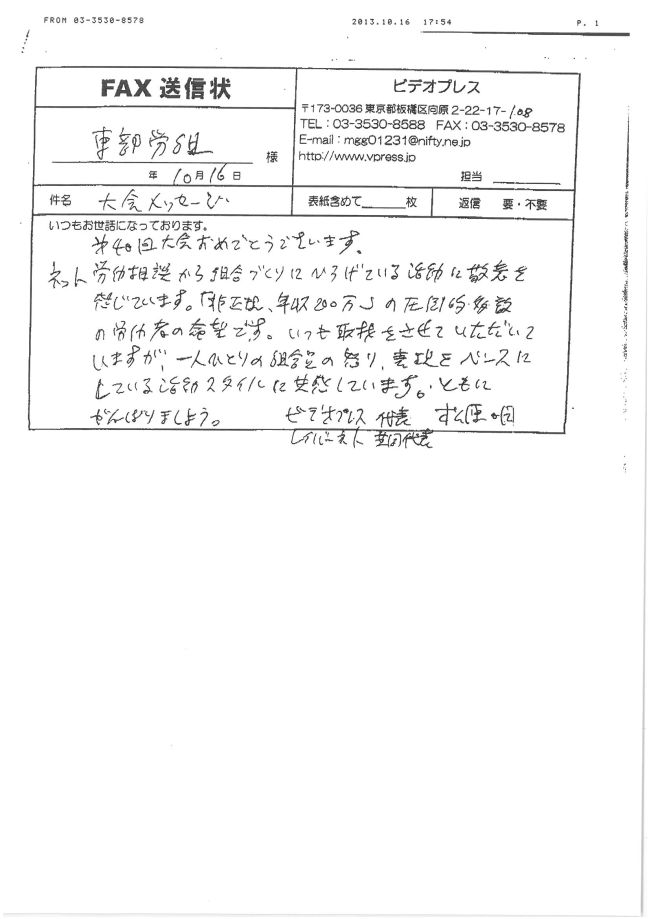 FROM 03-3530-8578 2013.10.16 17:54 P. 1
FAX 送信状
ビデオプレス
〒173-0036 東京都板橋区向原 2-22-17-108
TEL：03-3530-8588 FAX：03-3530-8578
E-mail：mgg01231@nifty.ne.jp
http://www.vpress.jp
東部労組 様
年 10月16日
担当
件名 大会メッセージ
表紙含めて 枚
返信 要・不要
いつもお世話になっております。
第40回大会おめでとうございます。
ネット労働相談から組合づくりにひろげている活動に敬意を
感じています。「非正規、年収200万」の圧倒的多数
の労働者の希望です。いつも取材をさせていただいて
いますが、一人ひとりの組合員の怒り、要求をベースに
している活動スタイルに共感しています。ともに
がんばりましょう。 ビデオプレス 代表 松原 明
レイバーネト 共同代表